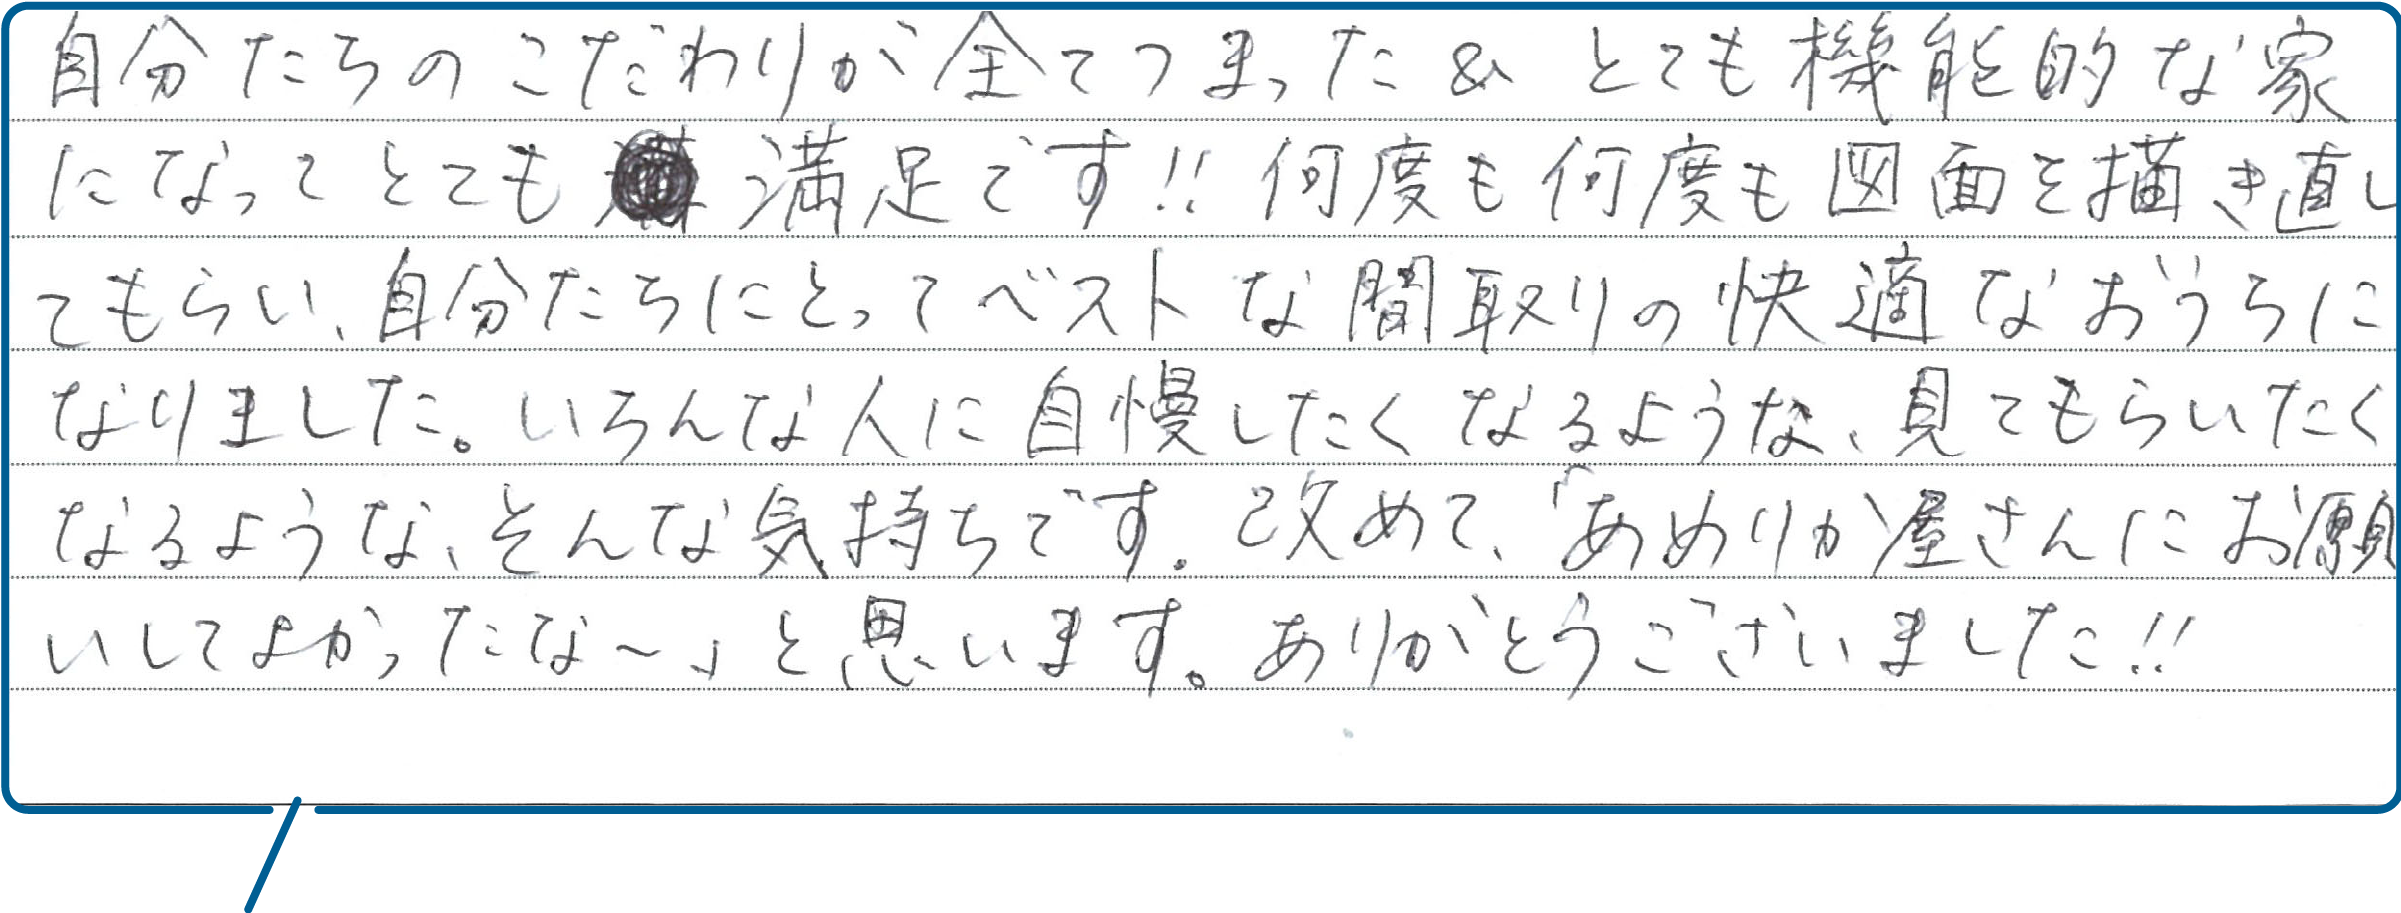 自分たちのこだわりが全てつまった & とても機能的な家
になってとても満足です!! 何度も何度も図面を描き直し
てもらい、自分たちにとってベストな間取りの快適なおうちに
なりました。いろんな人に自慢したくなるような、見てもらいたく
なるような、そんな気持ちです。改めて、「あめりか屋さんにお願
いしてよかったな〜」と思います。ありがとうございました!!